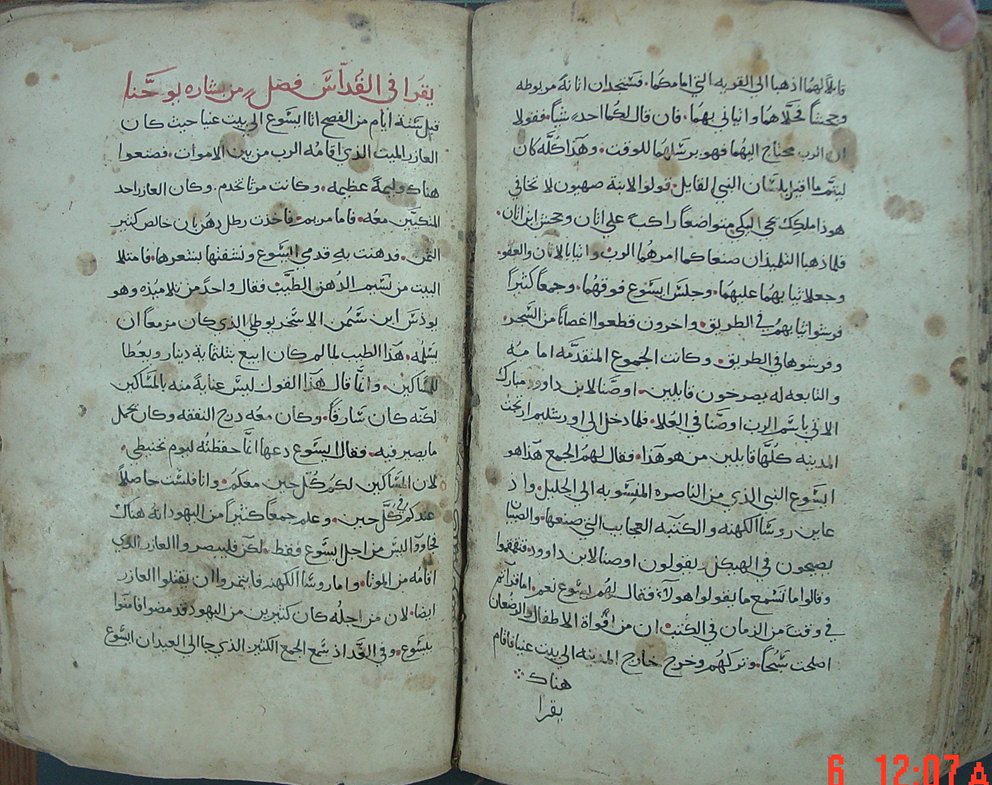 قايلاً لهما اذهبا الى القريه التي امامكما. فستجدان اتانه مربوطه
وجحشاً فحلاهما واتياني بهما. فان قال لكما احد شياً. فقولا
ان الرب محتاج اليهما فهو يرسلهما للوقت. وهذا كله كان
ليتم ما قيل بلسان النبي القايل. قولوا لابنة صهيون لا تخافي
هوذا ملكك يجي اليكي متواضعاً راكب علي اتان وجحش ابن اتان.
فلما ذهبا التلميذان صنعا كما امرهما الرب. واتيا بالاتان والعفو.
وجعلا ثيابهما عليهما. وجلس ايسوع فوقهما. وجمعاً كثيراً
فرشوا ثيابهم في الطريق. واخرون قطعوا اغصاناً من الشجر
وفرشوها في الطريق. وكانت الجموع المتقدمه امامه
والتابعه له يصرخون قايلين. اوصنا لابن داوود مبارك
الاتي باسم الرب اوصنا في العلا. فلما دخل الى اورشليم ارتجت
المدينه كلها قايلين من هو هذا. فقال لهم الجمع هذا هو
ايسوع النبي الذي من الناصره المنسوبه الى الجليل. واذ
عاين روسا الكهنه والكتبه العجايب التي صنعها. والصبيان
يصيحون في الهيكل. يقولون اوصنا لابن داوود. فتقمقموا
وقالوا ما تسمع ما يقولوا هولاء. فقال لهم ايسوع نعم. اما قراتم
في وقت من الزمان في الكتب ان من افواة الاطفال والرضعان
اصلحت سبحاً. وتركهم وخرج خارج المدينه الى بيت عنيا فاقام
هناك
يقرا
يقرا في القداس فصل من بشاره يوحنا
قبل ستة ايام من الفصح اتا ايسوع الى بيت عنيا حيث كان
العازر الميت الذي اقامه الرب من بين الاموات. فصنعوا
هناك وليمة عظيمه. وكانت مرتا تخدم. وكان العازر احد
المتكيين معه. فاما مريم. فاخذت رطل دهن خالص كثير
الثمن. فدهنت به قدمي ايسوع ونشفتها بشعرها. فامتلا
البيت من نسيم الدهن الطيب فقال واحد من تلاميذه وهو
يوذس ابن شمن الاسخريوطي الذي كان مزمعاً ان
يسلمه. هذا الطيب لما لم كان ابيع بثلثماية دينار ويعطا
للمساكين. وانما قال هذا القول ليس عناية منه بالمساكين
لكنه كان سارقاً. وكان معه درج النفقه وكان يحمل
ما يصير فيه. فقال ايسوع دعها انما حفظته ليوم تحنيطي.
لان المساكين لكم كل حين معكم. وانا فلست حاصلاً
عندكم في كل حين. وعلم جمعاً كثيراً من اليهود انه هناك
فجاووا ليس من اجل ايسوع فقط. لكن فليبصروا العازر الذي
اقامه من الموتا. واما روسا الكهنه فايتمروا ان يقتلوا العازر
ايضا. لان من اجله كان كثيرين من اليهود قد مضوا فامنوا
بيسوع. وفي الغد اذ سمع الجمع الكثير الذي جا الى العيد ان ايسوع
6 12:07